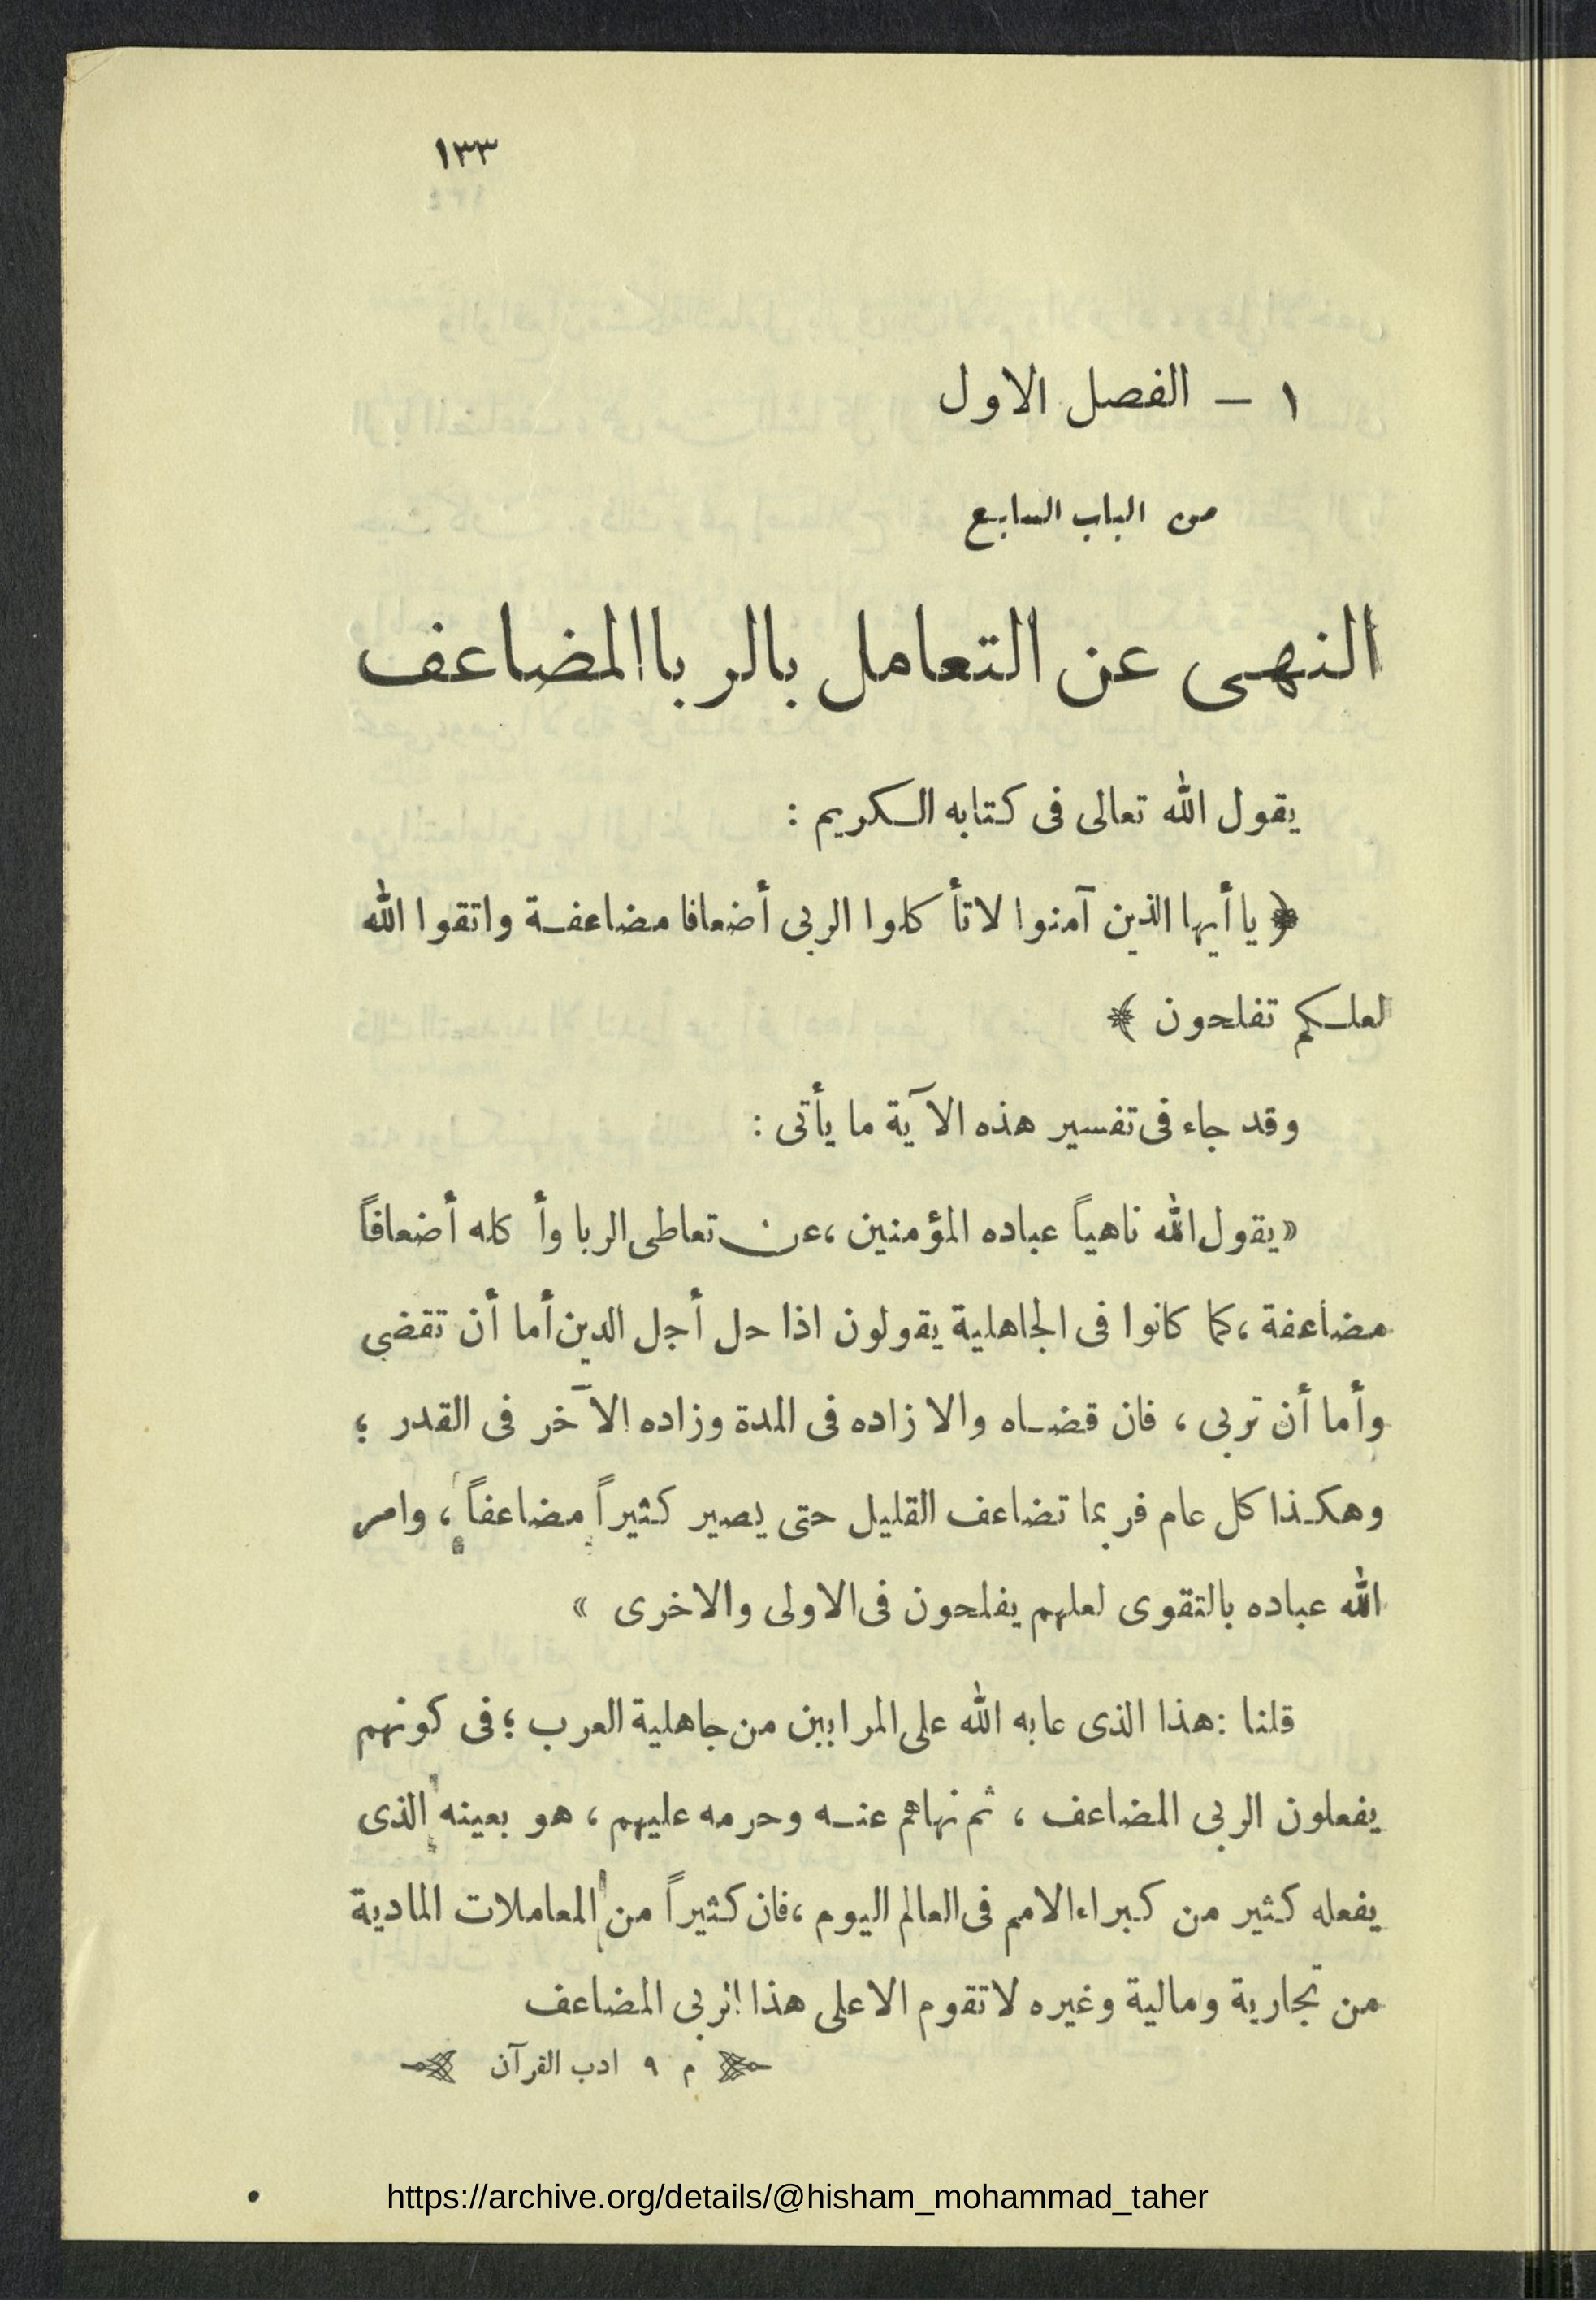 ١٣٣
١ – الفصل الاول
من الباب السابع
النهى عن التعامل بالربا المضاعف
يقول الله تعالى فى كتابه الكريم :
﴿ يا أيها الذين آمنوا لا تأكلوا الربى أضعافا مضاعفة واتقوا الله
لعلكم تفلحون ﴾
وقد جاء فى تفسير هذه الآية ما يأتى :
«يقول الله ناهياً عباده المؤمنين ،عن تعاطى الربا وأكله أضعافاً
مضاعفة ،كما كانوا فى الجاهلية يقولون اذا حل أجل الدين أما أن تقضى
وأما أن تربى ، فان قضاه والا زاده فى المدة وزاده الآخر فى القدر ؛
وهكذا كل عام فربما تضاعف القليل حتى يصير كثيراً مضاعفاً ، وامر
الله عباده بالتقوى لعلهم يفلحون فى الاولى والاخرى »
قلنا :هذا الذى عابه الله على المرابين من جاهلية العرب ؛فى كونهم
يفعلون الربى المضاعف ، ثم نهاهم عنه وحرمه عليهم ، هو بعينه الذى
يفعله كثير من كبراء الامم فى العالم اليوم ،فان كثيراً من المعاملات المادية
من تجارية ومالية وغيره لا تقوم الا على هذا الربى المضاعف
م ٩ ادب القرآن
https://archive.org/details/@hisham_mohammad_taher